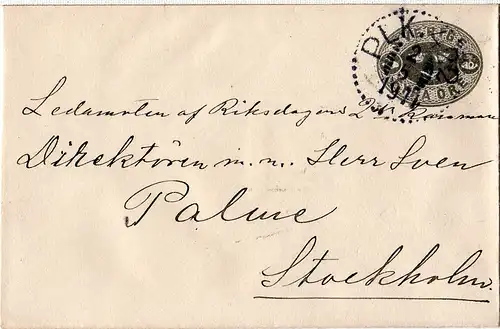 PLK
1911
ÖRE
Ledamoten af Riksdagens 2dra Kammare
Direktören m.m. Herr Sven
Palme
Stockholm.